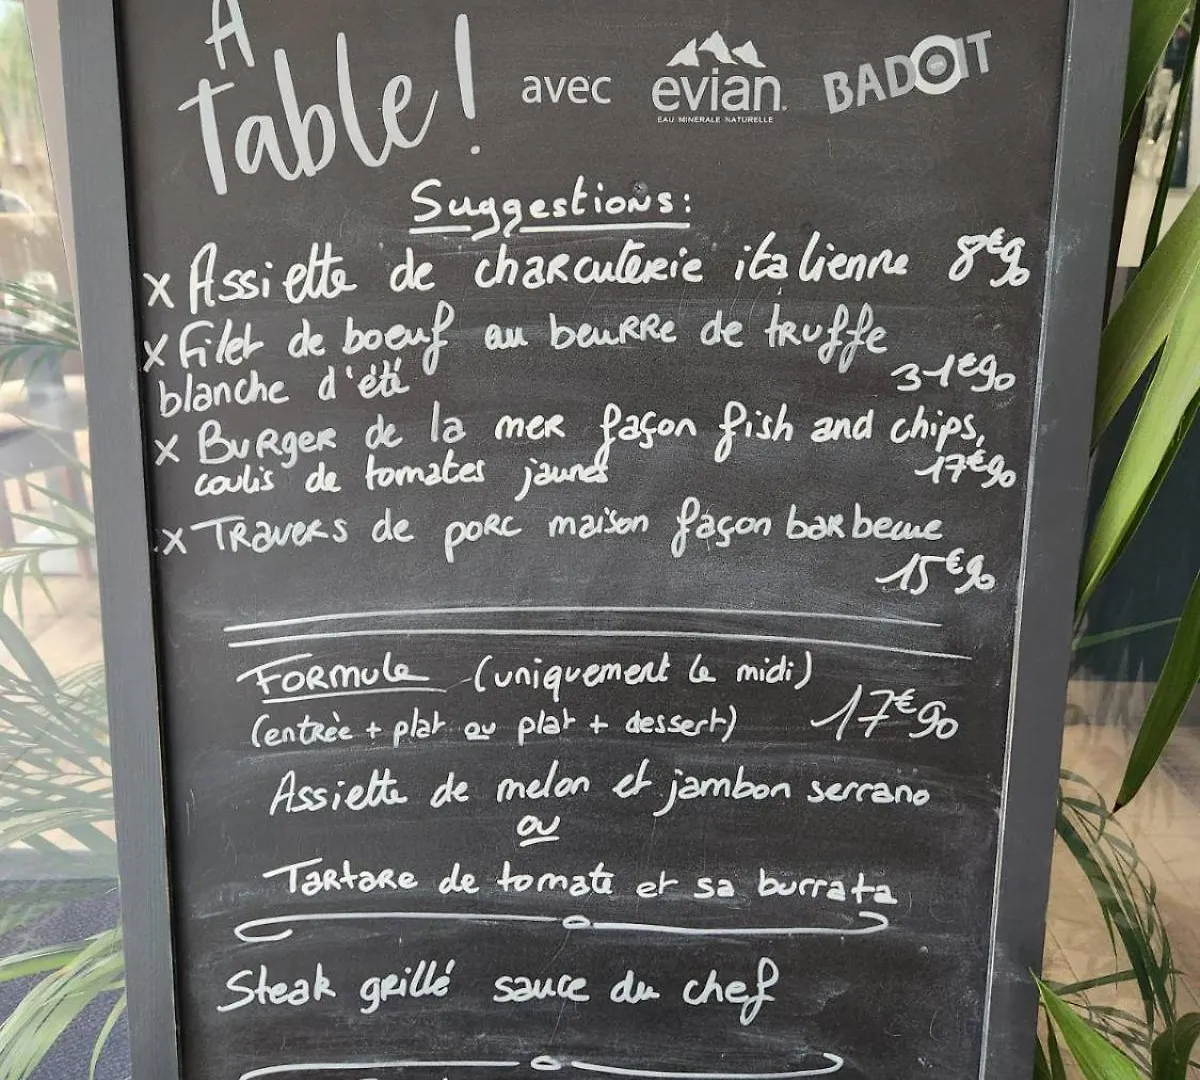 A
Table!
avec evian. BADOIT
EAU MINERALE NATURELLE
Suggestions:
x Assiette de charcuterie italienne 8€90
x Filet de boeuf au beurre de truffe
blanche d'été 31€90
x Burger de la mer façon fish and chips,
coulis de tomates jaunes 17€90
x Travers de porc maison façon barbecue
15€90
Formule (uniquement le midi)
(entrée + plat ou plat + dessert) 17€90
Assiette de melon et jambon serrano
ou
Tartare de tomate et sa burrata
Steak grillé sauce du chef